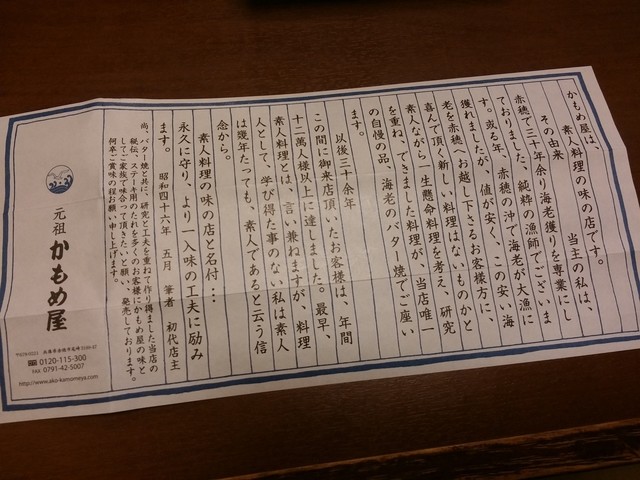 かもめ屋は、
素人料理の味の店です。
その由来　当主の私は、
赤穂で三十年余り海老獲りを専業にし
ておりました、純粋の漁師でございま
す。或る年、赤穂の沖で海老が大漁に
獲れましたが、値が安く、この安い海
老を赤穂へお越し下さるお客様方に、
喜んで頂く新しい料理はないものかと
素人ながら一生懸命料理を考え、研究
を重ね、できました料理が、当店唯一
の自慢の品、海老のバター焼でござい
ます。
以後三十余年
この間に御来店頂いたお客様は、年間
十二萬人様以上に達しました。最早、
素人料理とは、言い兼ねますが、料理
人として、学び得た事のない私は素人
は幾年たっても、素人であると云う信
念から。
素人料理の味の店と名付…
永久に守り、より一入味の工夫に励み
ます。　昭和四十六年　五月　筆者　初代店主
尚、バター焼と共に、研究と工夫を重ねて作り得ました当店の
秘伝、ステーキ用のたれを多くのお客様にかもめ屋の味と
してご家族で味合って頂きたいと願い、発売しております。
何卒ご賞味の程お願い申し上げます。
元祖 かもめ屋
0120-115-300
FAX 0791-42-5007
http://www.ako-kamomeya.com